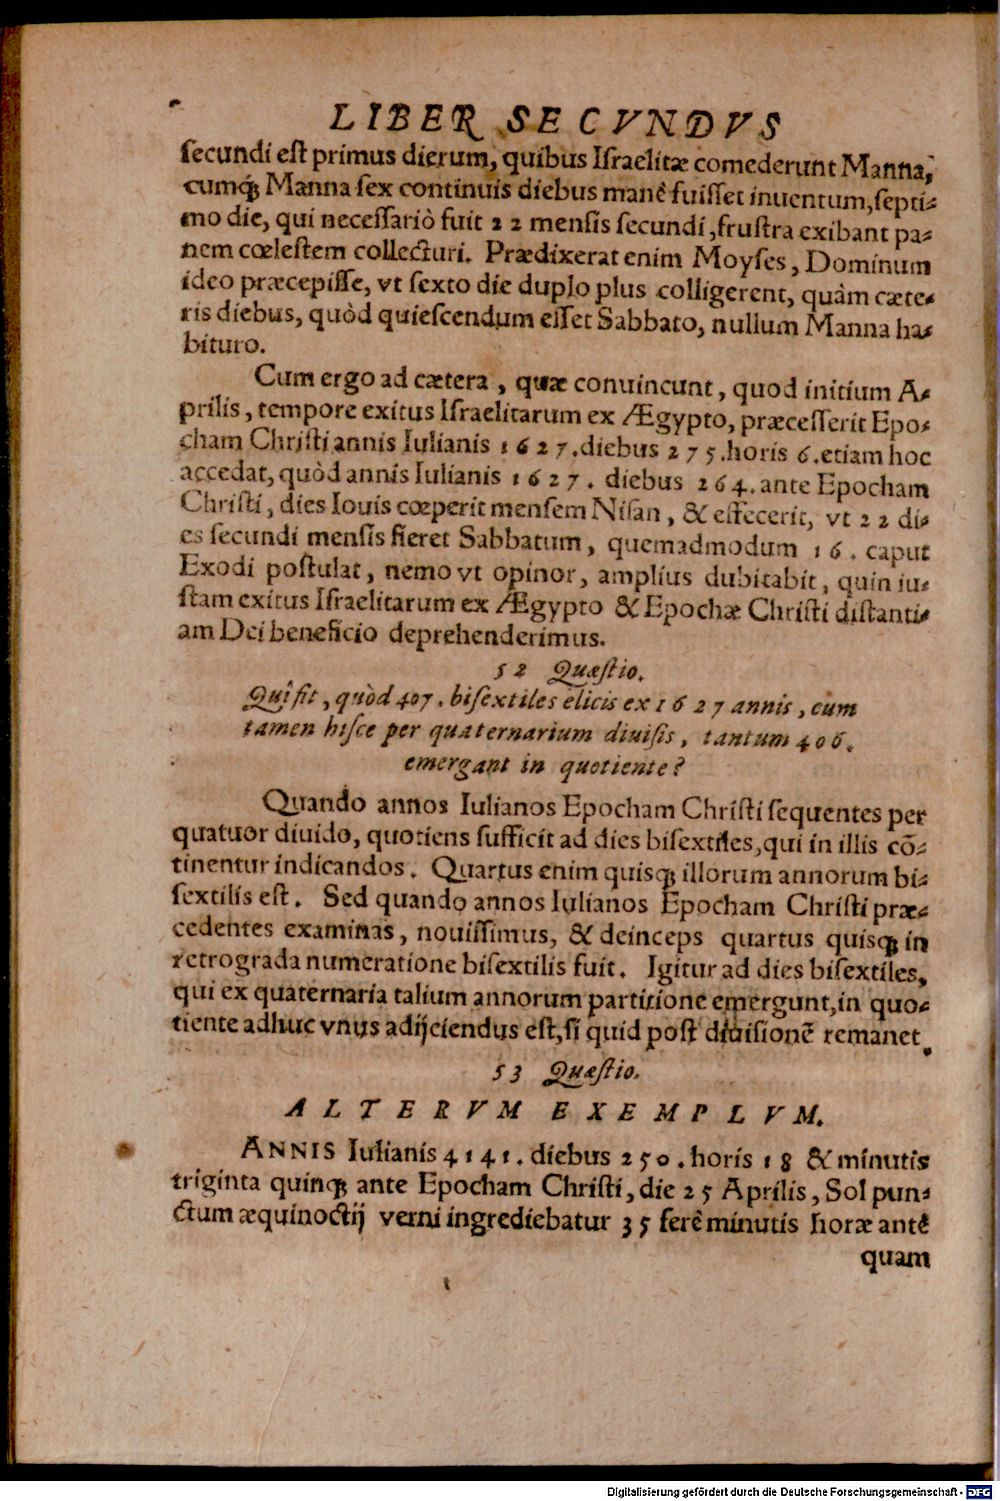 LIBER SECVNDVS
secundi est primus dierum, quibus Israelitæ comederunt Manna,
cumq́; Manna sex continuis diebus manè fuisset inuentum, septi-
mo die, qui necessariò fuit 22 mensis secundi, frustra exibant pa-
nem cœlestem collecturi. Prædixerat enim Moyses, Dominum
ideo præcepisse, vt sexto die duplo plus colligerent, quàm cæte-
ris diebus, quòd quiescendum esset Sabbato, nullum Manna ha-
bituro.
Cum ergo ad cætera, quæ conuincunt, quod initium A-
prilis, tempore exitus Israelitarum ex Ægypto, præcesserit Epo-
cham Christi annis Iulianis 1627. diebus 275. horis 6. etiam hoc
accedat, quòd annis Iulianis 1627. diebus 264. ante Epocham
Christi, dies Iouis cœperit mensem Nisan, & effecerit, vt 22 di-
es secundi mensis fieret Sabbatum, quemadmodum 16. caput
Exodi postulat, nemo vt opinor, amplius dubitabit, quin iu-
stam exitus Israelitarum ex Ægypto & Epochæ Christi distanti-
am Dei beneficio deprehenderimus.
52 Quæstio.
Quî fit, quòd 407. bisextiles elicis ex 1627 annis, cum
tamen hisce per quaternarium diuisis, tantum 406.
emergant in quotiente?
Quando annos Iulianos Epocham Christi sequentes per
quatuor diuido, quotiens sufficit ad dies bisextiles, qui in illis cō-
tinentur indicandos. Quartus enim quisq; illorum annorum bi-
sextilis est. Sed quando annos Iulianos Epocham Christi præ-
cedentes examinas, nouissimus, & deinceps quartus quisq; in
retrograda numeratione bisextilis fuit. Igitur ad dies bisextiles,
qui ex quaternaria talium annorum partitione emergunt, in quo-
tiente adhuc vnus adijciendus est, si quid post diuisionē remanet.
53 Quæstio.
ALTERVM EXEMPLVM.
ANNIS Iulianis 4141. diebus 250. horis 18 & minutis
triginta quinq; ante Epocham Christi, die 25 Aprilis, Sol pun-
ctum æquinoctij verni ingrediebatur 35 ferè minutis horæ antè
quam
Digitalisierung gefördert durch die Deutsche Forschungsgemeinschaft - DFG